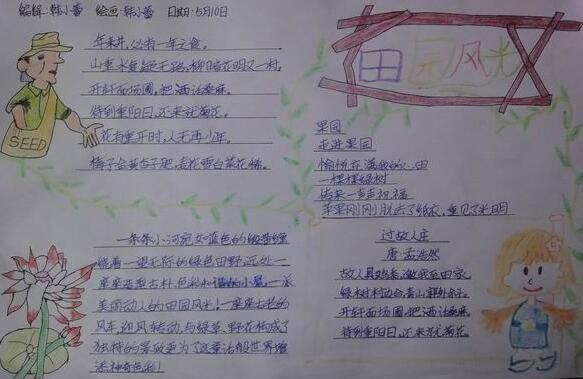 编辑:韩小蕾 绘画:韩小蕾 日期:5月10日
田园风光
年来井,必有一年之食。
山重水复疑无路,柳暗花明又一村。
开轩面场圃,把酒话桑麻。
待到重阳日,还来就菊花。
花有重开时,人无再少年。
梅子金黄杏子肥,麦花雪白菜花稀。
SEED
果园
走进果园
愉悦在满我的心田
一棵棵绿树
传来一声声祝福
苹果刚刚脱去了纸衣,重见了光明
一条条小河宛如蓝色的缎带缠
绕着一望无际的绿色田野,远处一
座座造型古朴,色彩和谐的小屋,一派
美丽动人的田园风光!一座座古老的
风车迎风转动,与绿草、野花构成了
独特的景致更为了这童话般世界增
添神奇色彩!
过故人庄
唐·孟浩然
故人具鸡黍,邀我至田家。
绿树村边合,青山郭外斜。
开轩面场圃,把酒话桑麻。
待到重阳日,还来就菊花。